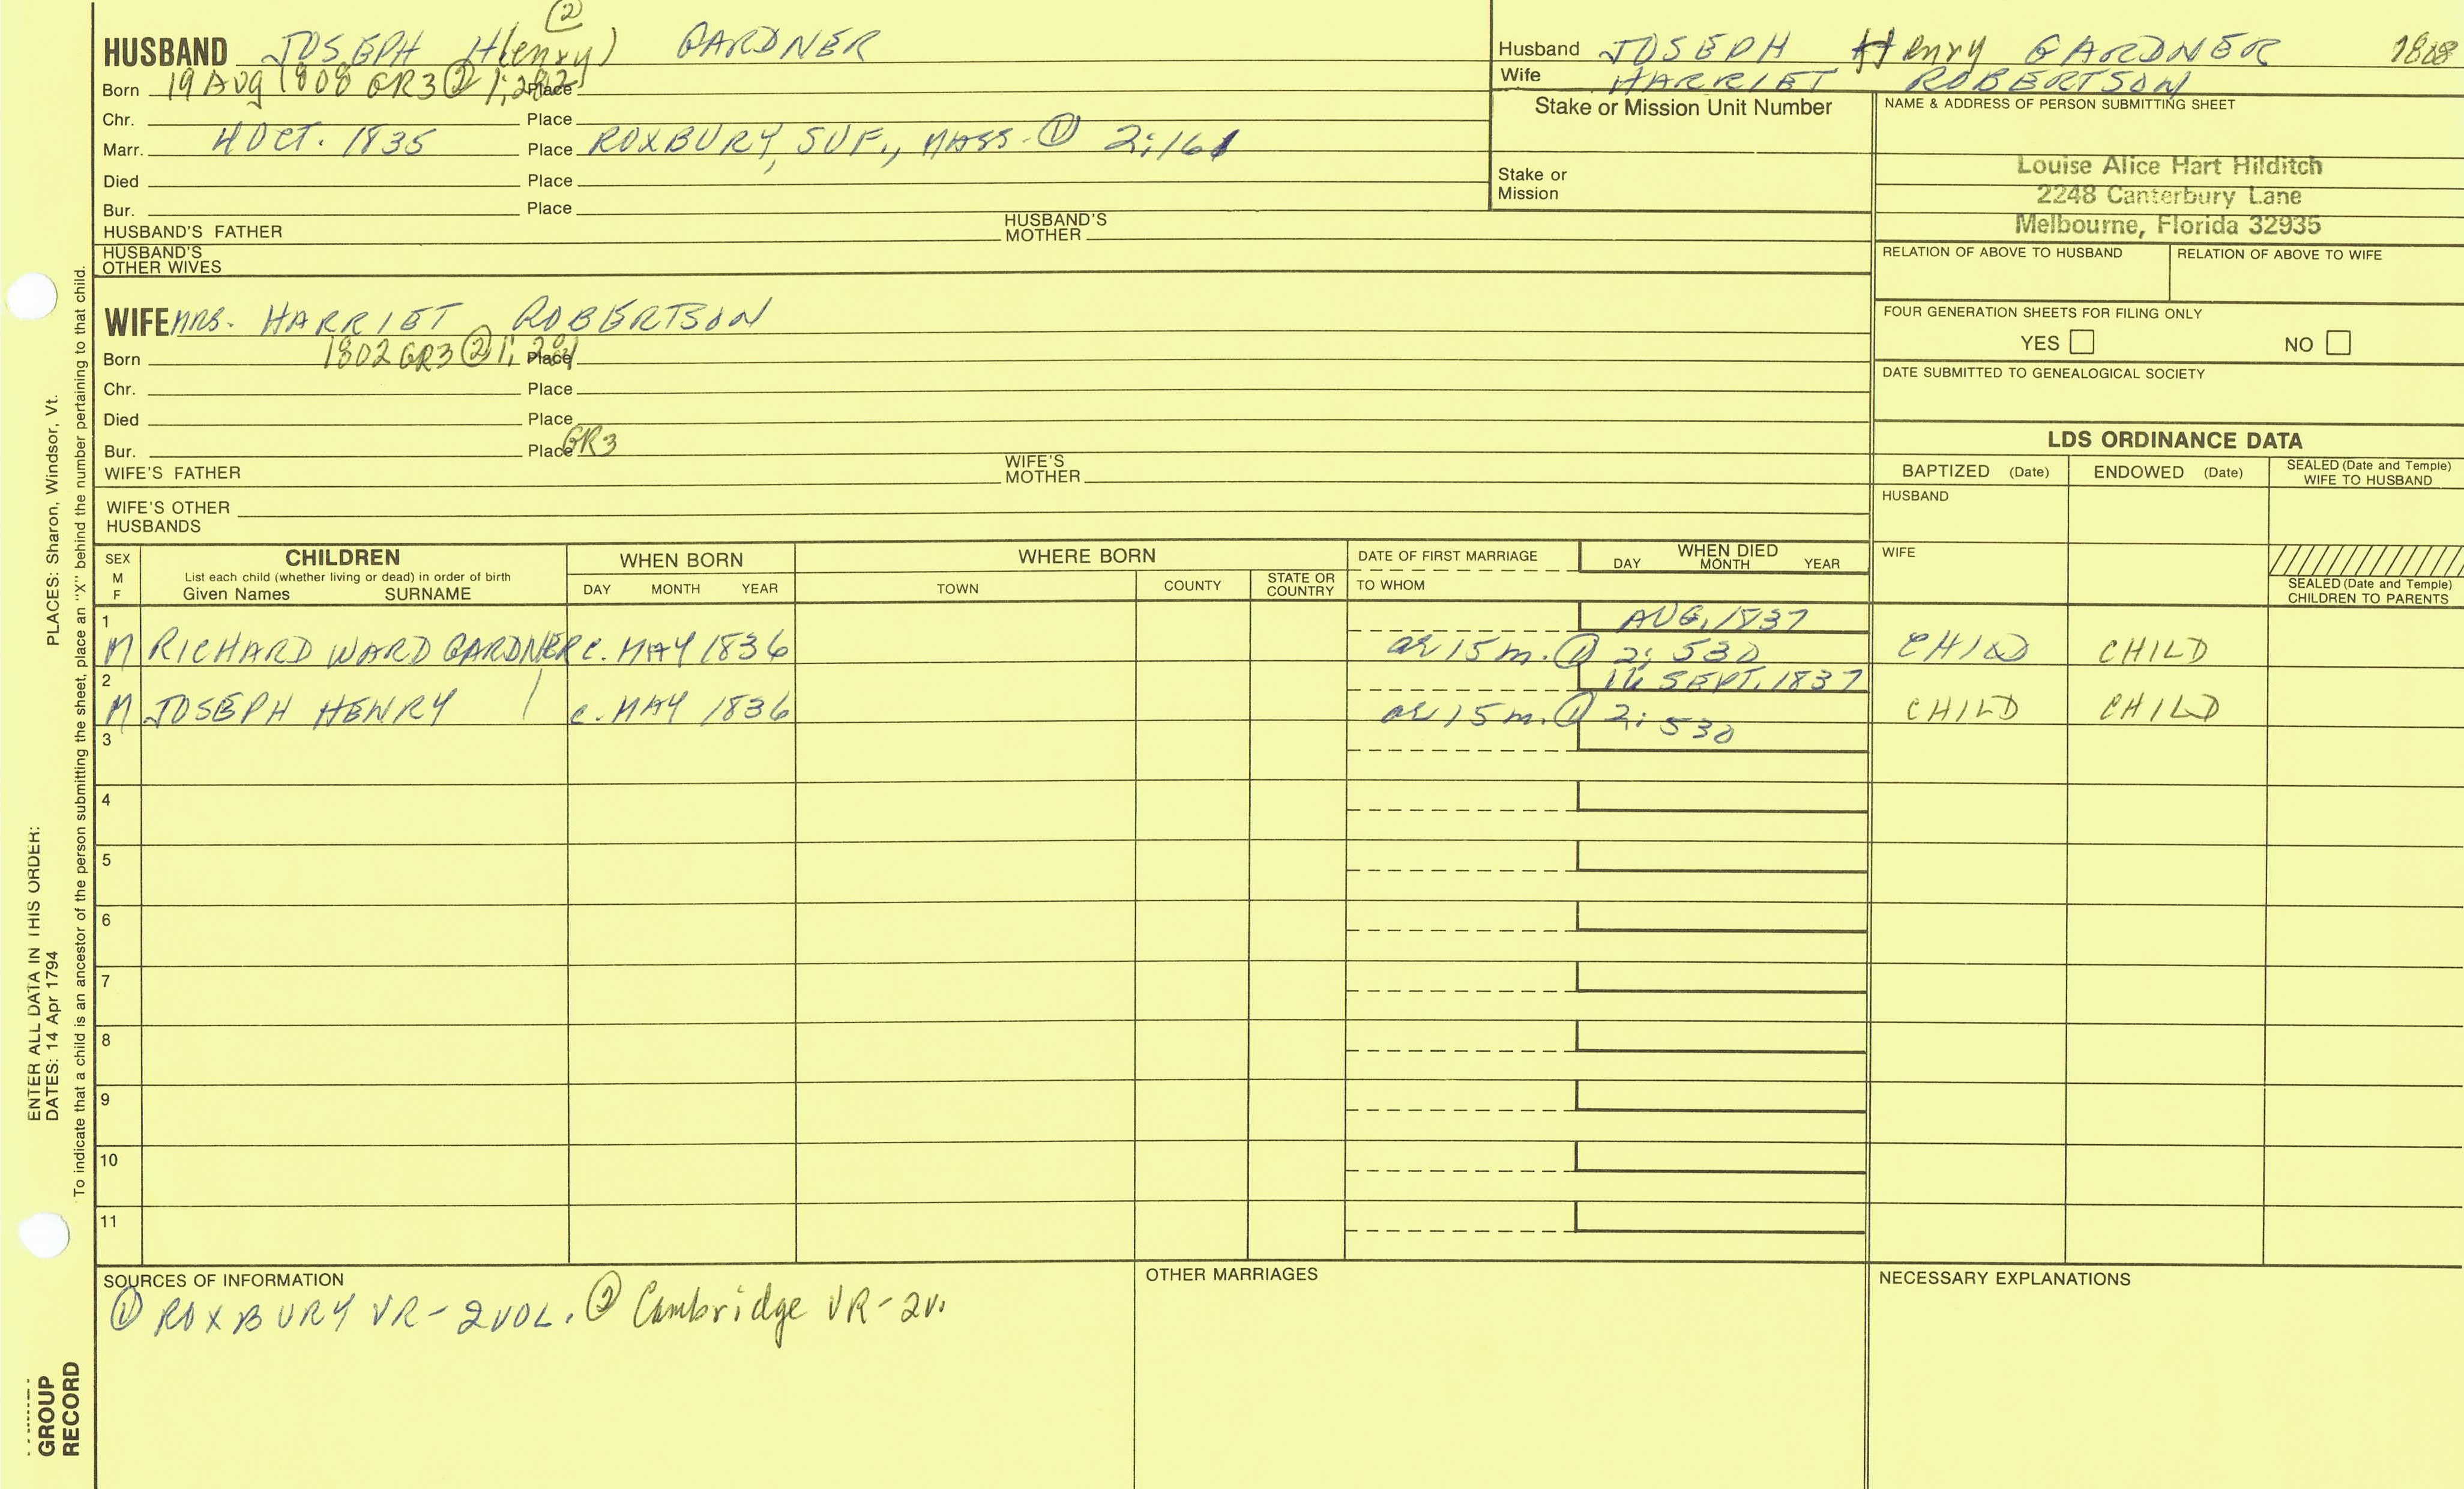 ②
HUSBAND JOSEPH H(enry) GARDNER
Born 19 Aug 1808 GR3 ② 1; 282 Place
Chr. Place
Marr. 4 OCT. 1835 Place ROXBURY, SUF., MASS. ① 2:161
Died Place
Bur. Place
HUSBAND'S FATHER HUSBAND'S MOTHER
HUSBAND'S OTHER WIVES
Husband JOSEPH Henry GARDNER 1808
Wife HARRIET ROBERTSON
Stake or Mission Unit Number
Stake or
Mission
NAME & ADDRESS OF PERSON SUBMITTING SHEET
Louise Alice Hart Hilditch
2248 Canterbury Lane
Melbourne, Florida 32935
RELATION OF ABOVE TO HUSBAND RELATION OF ABOVE TO WIFE
WIFE MRS. HARRIET ROBERTSON
Born 1802 GR3 ② 1; Place
Chr. Place
Died Place
Bur. Place GR3
WIFE'S FATHER WIFE'S MOTHER
WIFE'S OTHER
HUSBANDS
FOUR GENERATION SHEETS FOR FILING ONLY
YES NO
DATE SUBMITTED TO GENEALOGICAL SOCIETY
LDS ORDINANCE DATA
BAPTIZED (Date) ENDOWED (Date) SEALED (Date and Temple) WIFE TO HUSBAND
HUSBAND
WIFE
SEALED (Date and Temple)
CHILDREN TO PARENTS
SEX CHILDREN WHEN BORN WHERE BORN DATE OF FIRST MARRIAGE WHEN DIED
M List each child (whether living or dead) in order of birth DAY MONTH YEAR
F Given Names SURNAME DAY MONTH YEAR TOWN COUNTY STATE OR COUNTRY TO WHOM
1 AUG, 1837
M RICHARD WARD GARDNER c. MAY 1836 ae 15 m. ① 2; 530 CHILD CHILD
2 SEPT. 1837
M JOSEPH HENRY c. MAY 1836 ae 15 m. ① 2; 530 CHILD CHILD
3
4
5
6
7
8
9
10
11
SOURCES OF INFORMATION
① ROXBURY VR - 2 VOL. ② Cambridge VR - 2 v.
OTHER MARRIAGES
NECESSARY EXPLANATIONS
ENTER ALL DATA IN THIS ORDER:
DATES: 14 Apr 1794 PLACES: Sharon, Windsor, Vt.
To indicate that a child is an ancestor of the person submitting the sheet, place an "X" behind the number pertaining to that child.
GROUP
RECORD